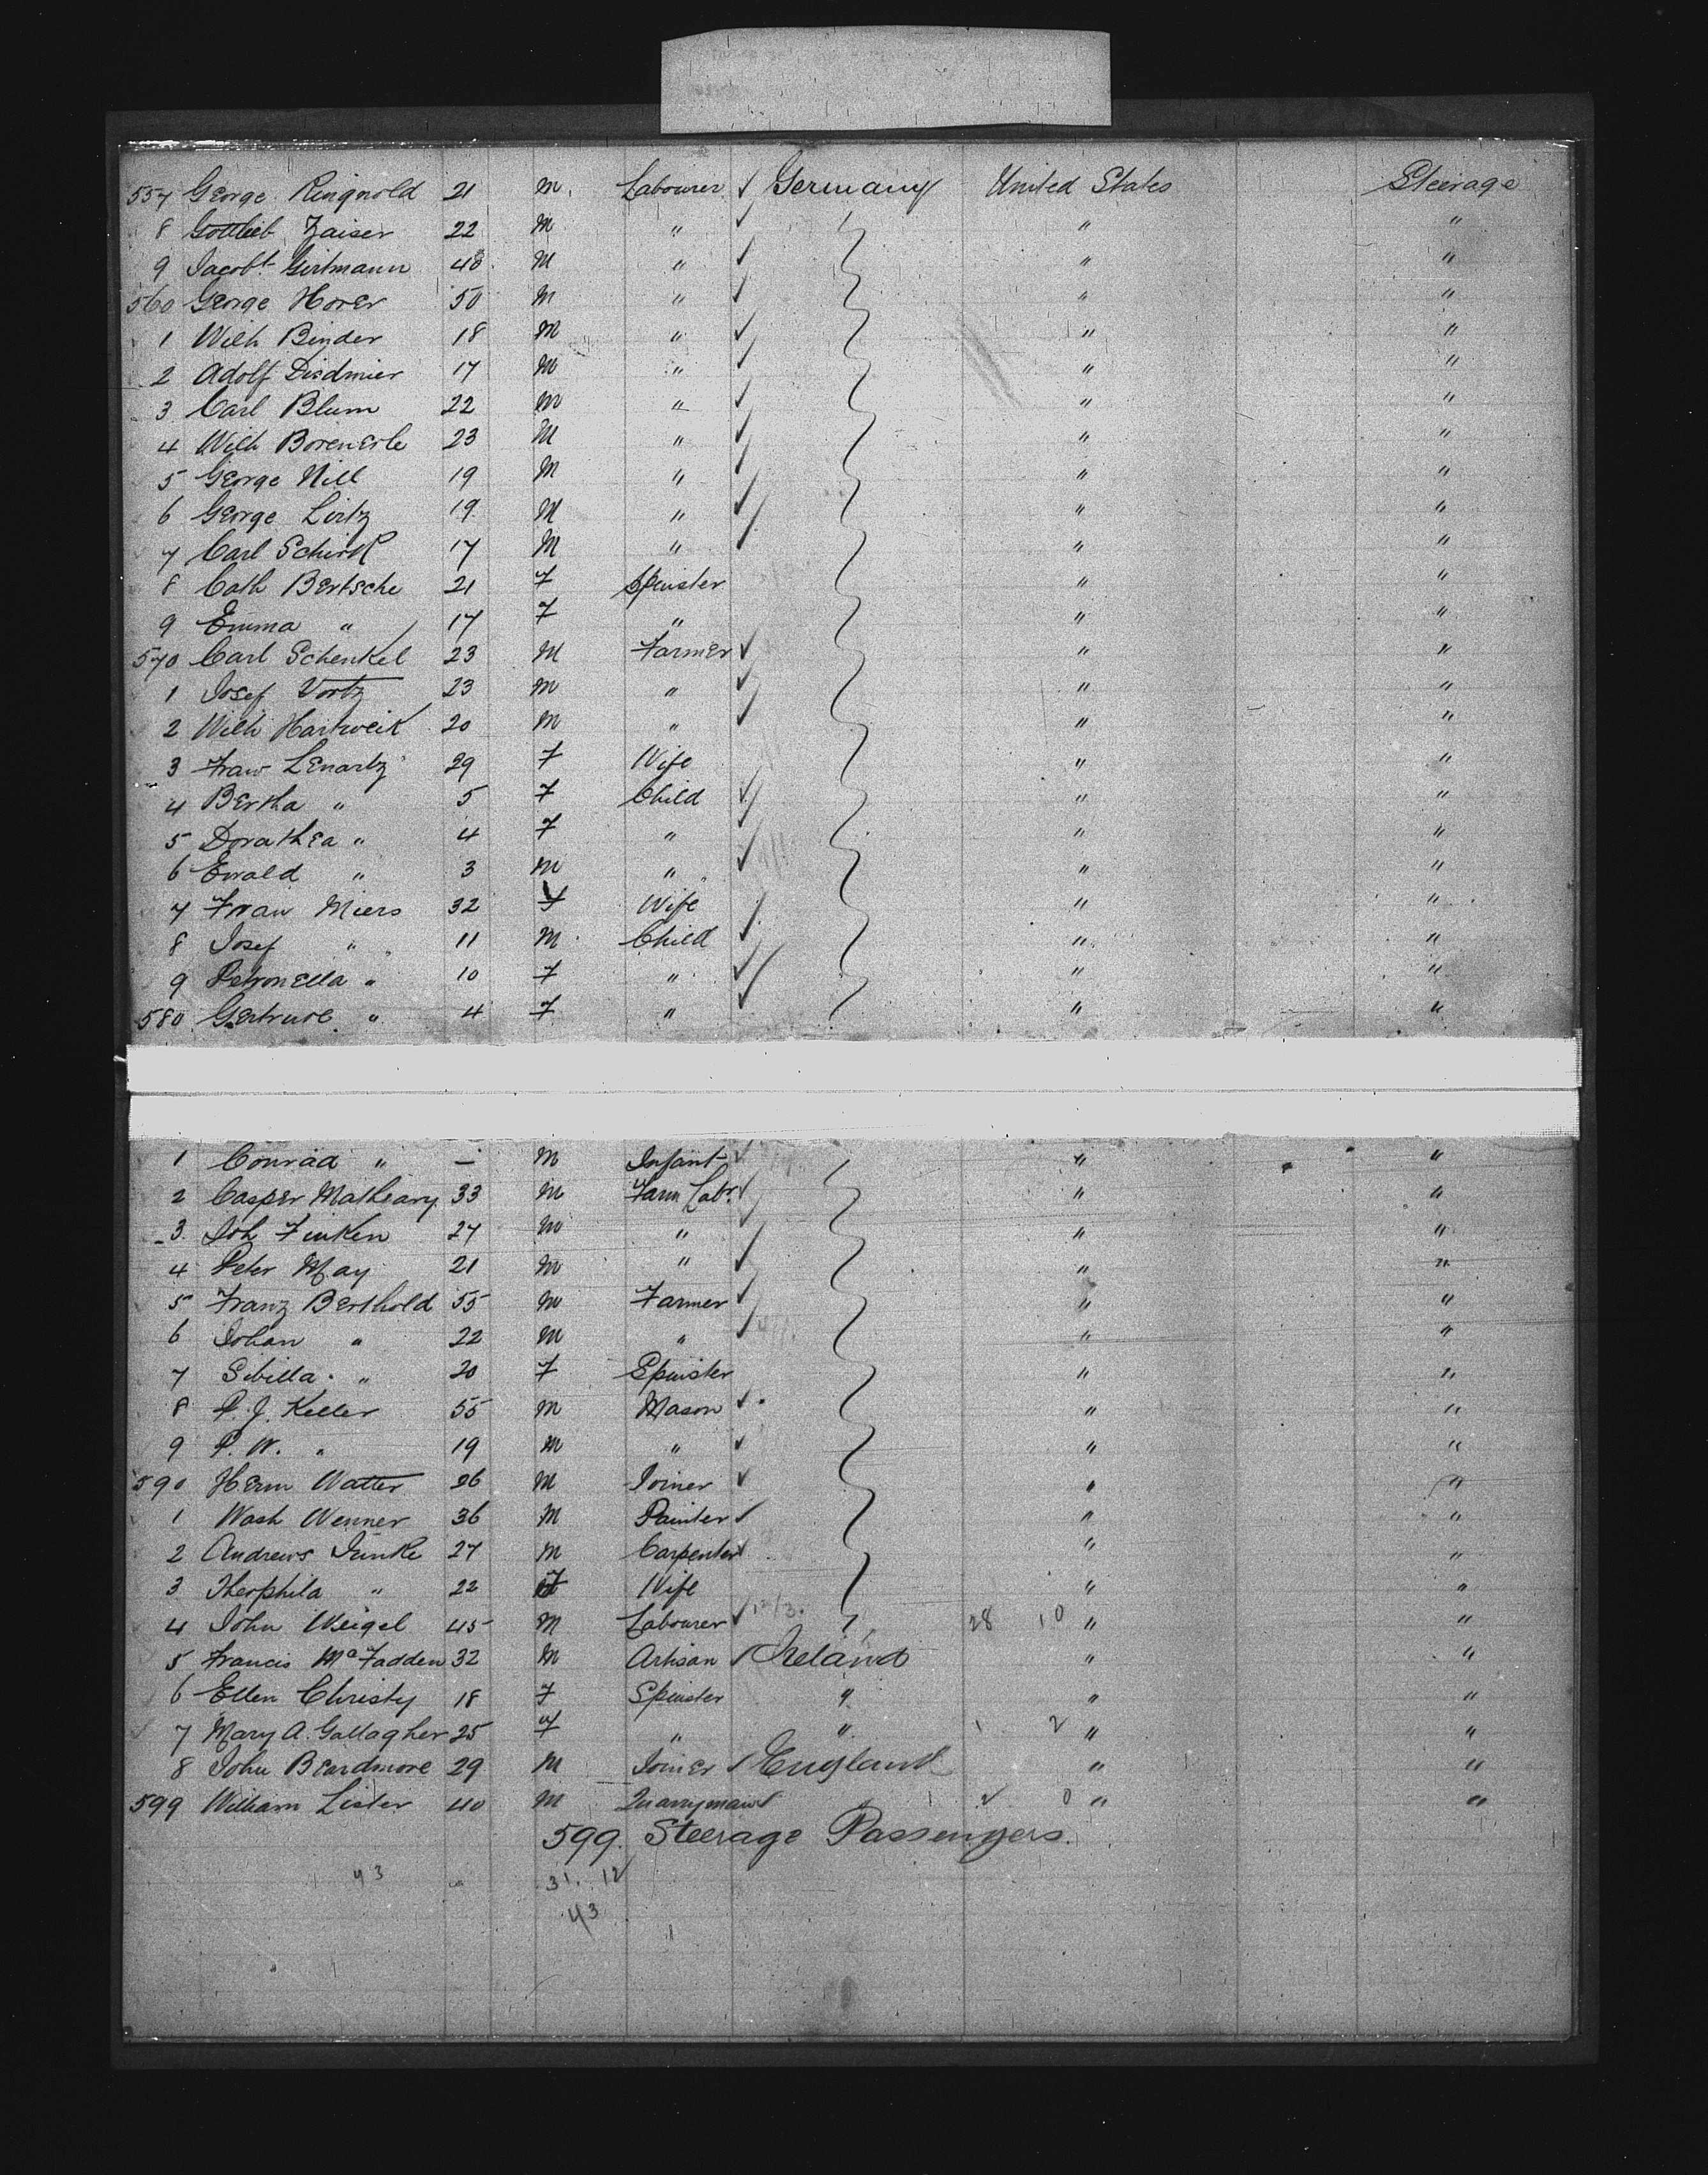 557 George Ringnold 21 M. Labourer ✓ Germany United States Steerage
8 Gottlieb Zaiser 22 M " ✓ " "
9 Jacobt. Girtmann 48 M " ✓ " "
560 George Horer 50 M " ✓ " "
1 Wilh Binder 18 M " ✓ " "
2 Adolf Disdmier 17 M " ✓ " "
3 Carl Blum 22 M " ✓ " "
4 Wilh Borenerle 23 M " ✓ " "
5 George Nill 19 M " ✓ " "
6 George Lirtz 19 M " ✓ " "
7 Carl Schirk 17 M " ✓ " "
8 Cath Bertsche 21 F Spinster " "
9 Emma " 17 F " " "
570 Carl Schenkel 23 M Farmer ✓ " "
1 Josef Vortz 23 M " ✓ " "
2 Wilh Hartweik 20 M " ✓ " "
3 Frau Lenartz 29 F Wife " "
4 Bertha " 5 F Child ✓ " "
5 Dorathea " 4 F " ✓ " "
6 Ewald " 3 M " ✓ " "
7 Frau Miers 32 F Wife " "
8 Josef " 11 M Child ✓ " "
9 Petronella " 10 F " ✓ " "
580 Gertrude " 4 F " ✓ " "
1 Conrad " — M Infant ✓ " "
2 Casper Matheary 33 M Farm Labr. ✓ " "
3 Joh Finken 27 M " " "
4 Peter May 21 M " ✓ " "
5 Franz Berthold 55 M Farmer ✓ " "
6 Johan " 22 M " ✓ " "
7 Sibilla " 20 F Spinster " "
8 P. J. Keller 55 M Mason ✓ " "
9 P. W. " 19 M " ✓ " "
590 Herm Watter 26 M Joiner ✓ " "
1 Wash Wenner 36 M Painter ✓ " "
2 Andrews Junke 27 M Carpenter ✓ " "
3 Theophila " 22 F Wife " "
4 John Weigel 45 M Labourer ✓ 28 10 " "
5 Francis McFadden 32 M Artisan ✓ Ireland " "
6 Ellen Christy 18 F Spinster " " "
7 Mary A. Gallagher 25 F " " 1 2 " "
8 John Beardmore 29 M Joiner ✓ England " "
599 William Lister 40 M Quarryman ✓ " 2 0 " "
599. Steerage Passengers.
43 31. 12
43